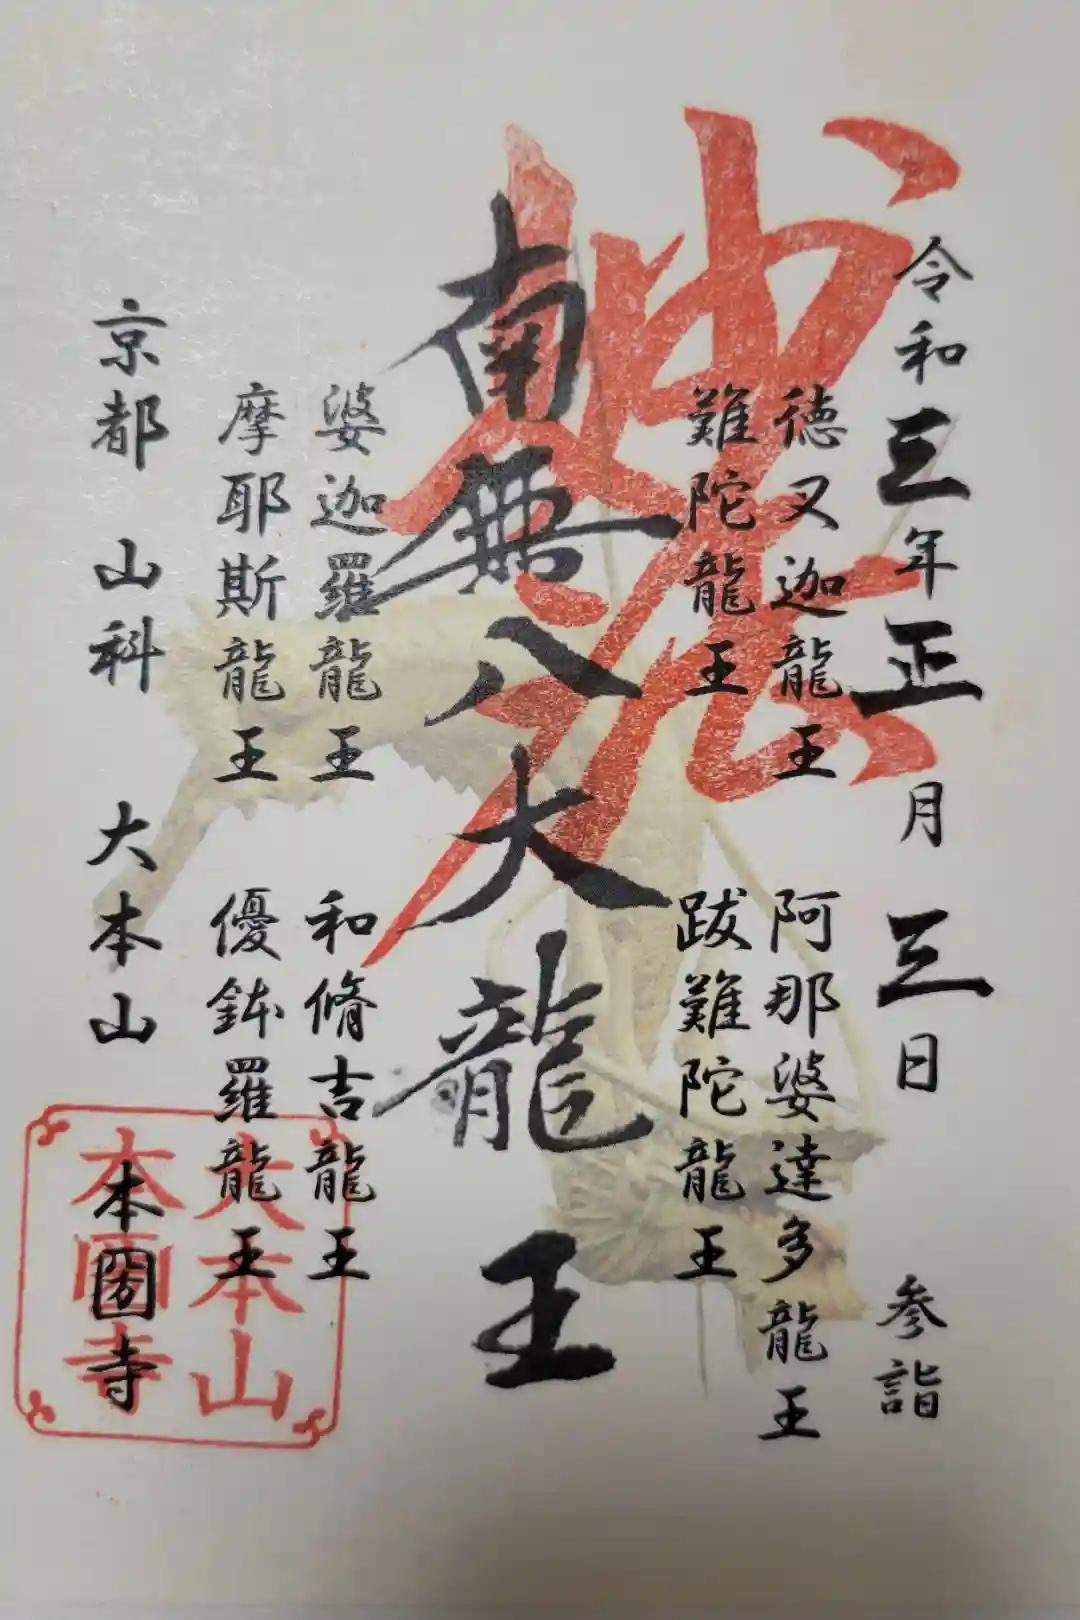 令和三年正月三日 参詣
妙法
徳叉迦龍王 阿那婆達多龍王
難陀龍王 跋難陀龍王
南無八大龍王
婆迦羅龍王 和脩吉龍王
摩耶斯龍王 優鉢羅龍王
京都 山科 大本山 本圀寺
大本山
本圀寺